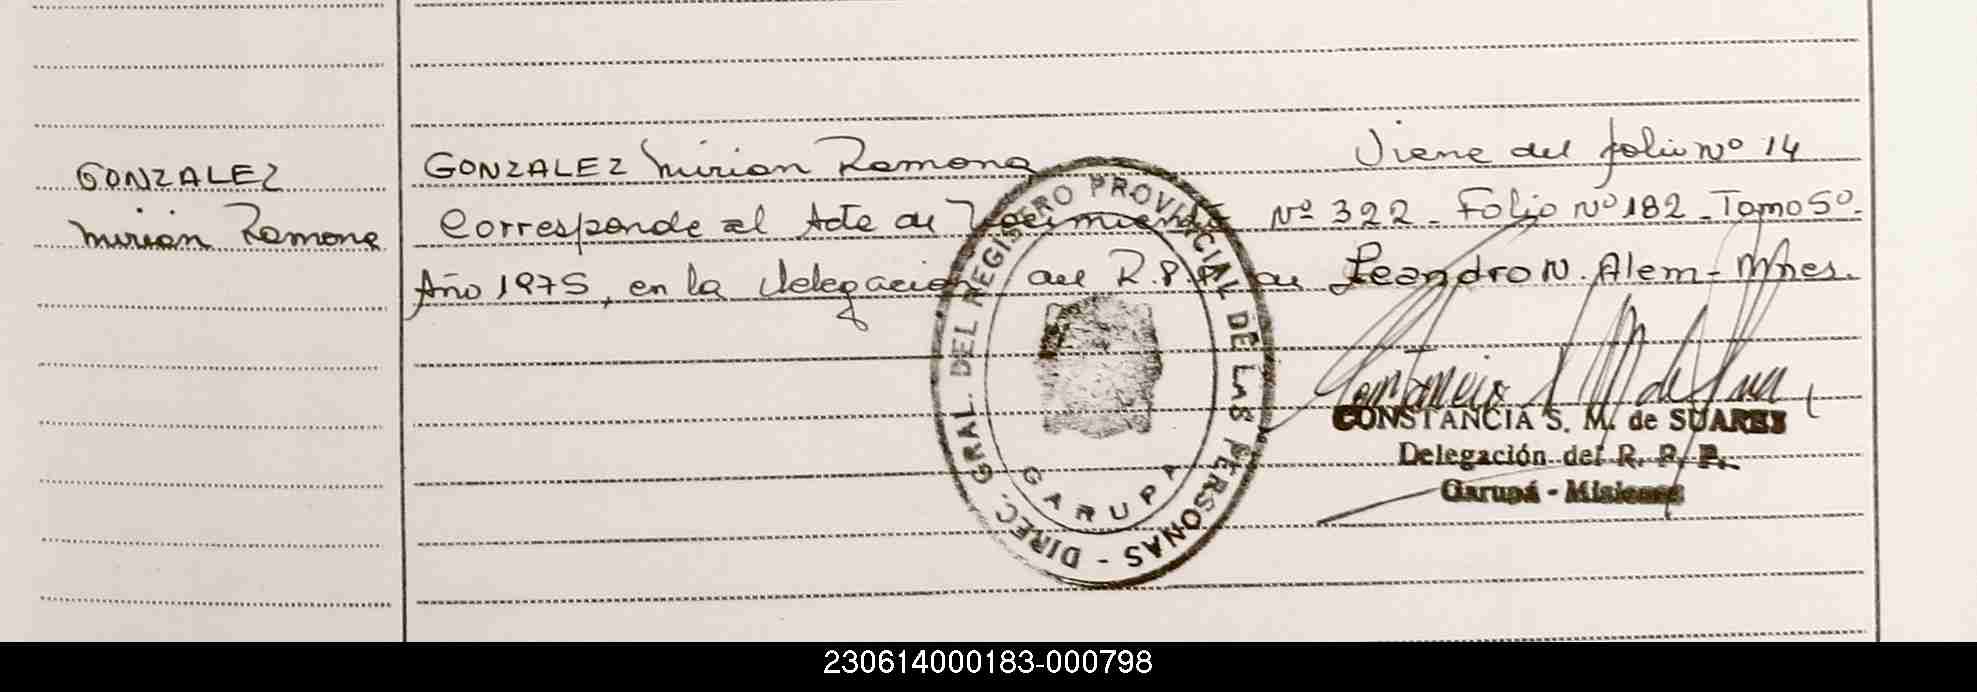 GONZALEZ
Mirian Ramona
GONZALEZ Mirian Ramona Viene del folio Nº 14
Corresponde al Acta de Nacimiento Nº 322 - Folio Nº 182 - Tomo 5º.
Año 1975, en la delegación del R.P.P. de Leandro N. Alem - Mnes.
DIREC. GRAL. DEL REGISTRO PROVINCIAL DE LAS PERSONAS -
GARUPA
CONSTANCIA S. M. de SUAREZ
Delegación del R. P. P.
Garupá - Misiones
230614000183-000798